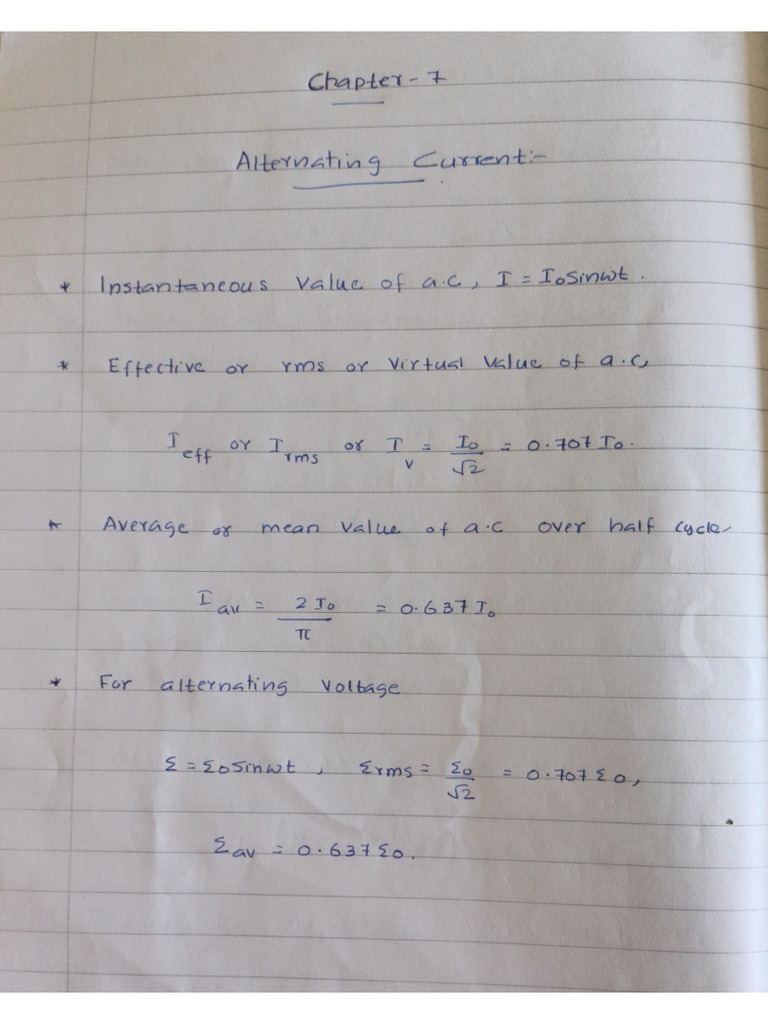 Chapter - 7
Alternating Current:-
* Instantaneous Value of a.c, I = I₀Sinωt.
* Effective or rms or Virtual Value of a.c,
I eff or I rms or I v = I₀/√2 = 0.707 I₀.
* Average or mean Value of a.c over half cycle-
I av = 2 I₀/π = 0.637 I₀
* For alternating Voltage
Ɛ = Ɛ₀Sinωt, Ɛrms = Ɛ₀/√2 = 0.707 Ɛ₀,
Ɛav = 0.637 Ɛ₀.